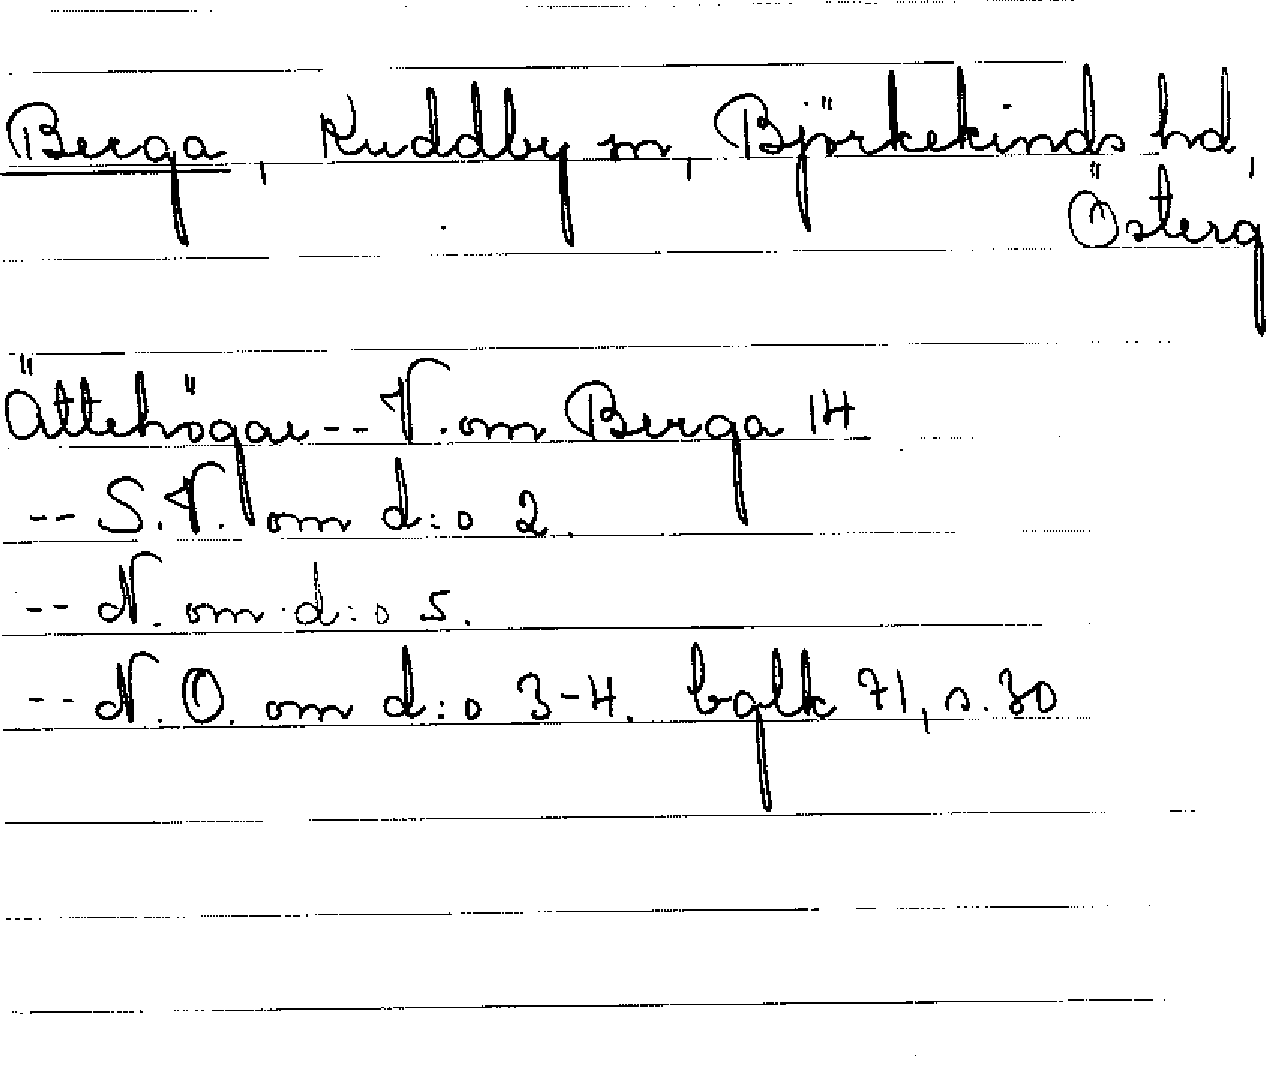 Berga, Kuddby sn, Björkekinds hd,
Österg
Ättehögar -- V. om Berga 14
-- S.V. om d:o 2.
-- N. om d:o 5.
-- N.O. om d:o 3-4. bglk 71, s. 30